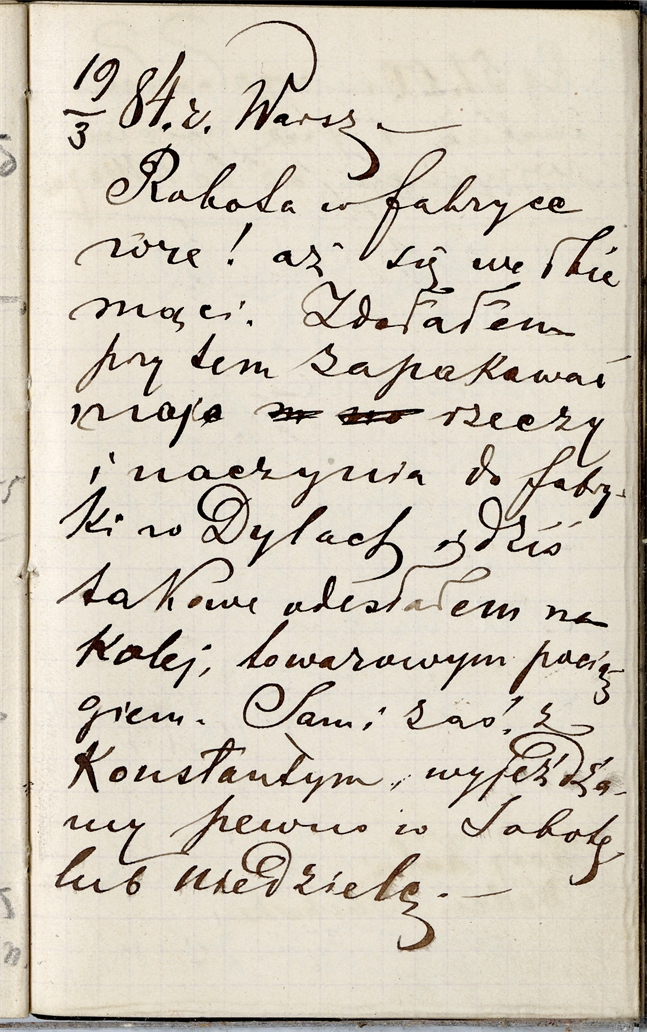 19/3 84.r. Warsz.—
Robota w fabryce
wre! aż się we łbie
mąci. Zdołałem
przy tem zapakować
moje rzeczy
i naczynia do fabry-
ki w Dylach, dziś
takowe odesłałem na
Kolej, towarowym pocią
giem. Sami zaś, z
Konstantym, wyjeżdża-
my pewno w Sobotę
lub niedzielę.—